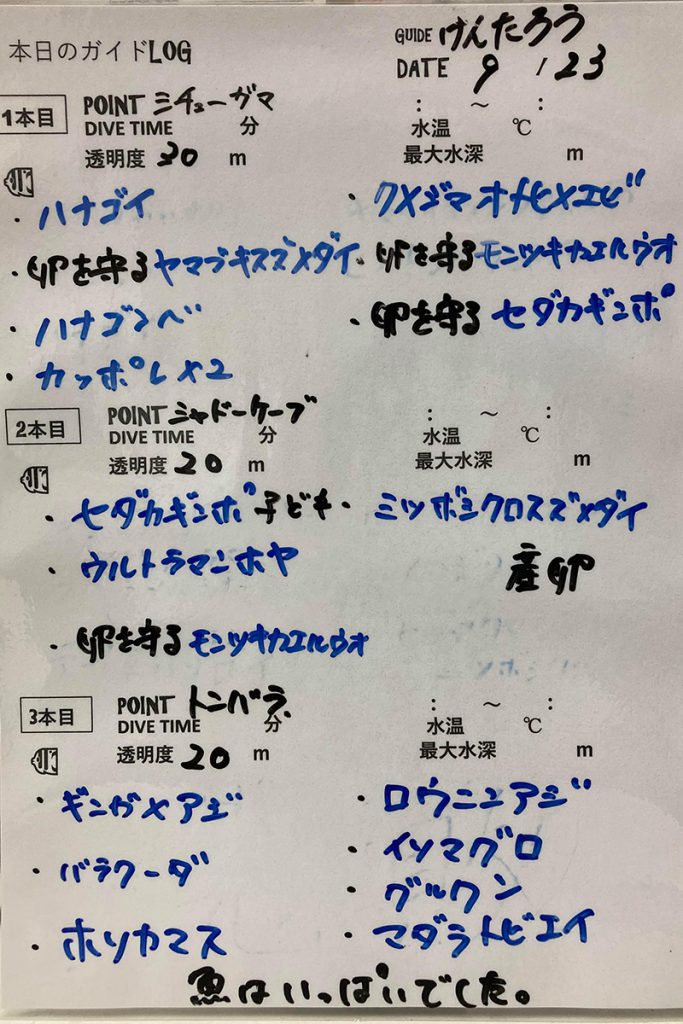 本日のガイドLOG
GUIDE けんたろう
DATE 9 / 23
1本目
POINT ミチューガマ
: ～ :
DIVE TIME 分
水温 ℃
透明度 30 m
最大水深 m
・ハナゴイ
・クメジマオトヒメエビ
・卵を守るヤマブキスズメダイ
・卵を守るモンツキカエルウオ
・ハナゴンベ
・卵を守るセダカギンポ
・カッポレ×2
2本目
POINT ミャドーケーブ
: ～ :
DIVE TIME 分
水温 ℃
透明度 20 m
最大水深 m
・セダカギンポ子ども
・ミツボシクロスズメダイ
産卵
・ウルトラマンホヤ
・卵を守るモンツキカエルウオ
3本目
POINT トンバラ
: ～ :
DIVE TIME 分
水温 ℃
透明度 20 m
最大水深 m
・ギンガメアジ
・ロウニンアジ
・イソマグロ
・バラクーダ
・グルクン
・ホソカマス
・マダラトビエイ
魚はいっぱいでした。